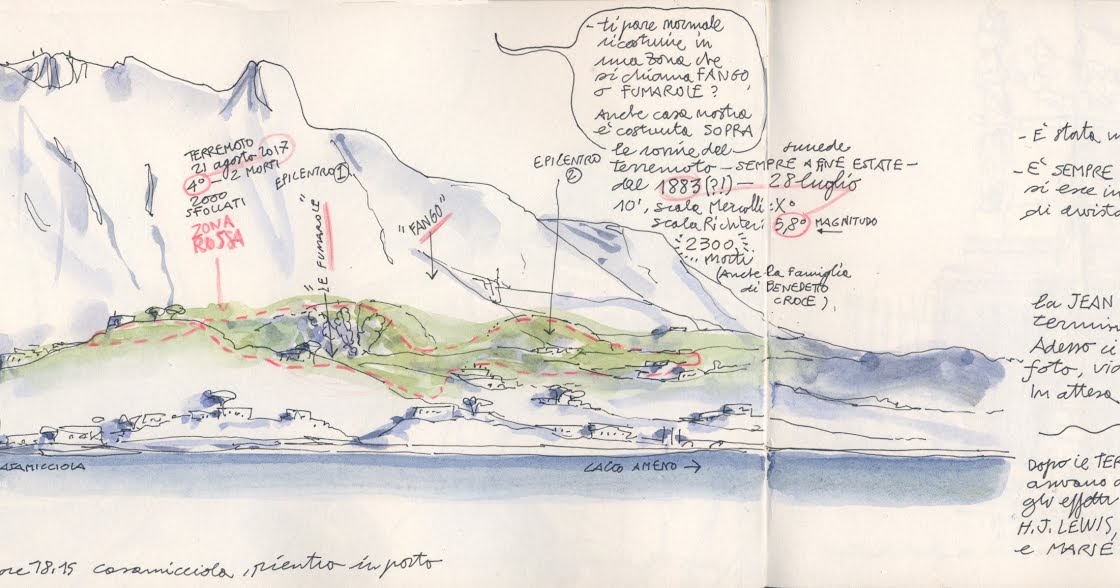 - ti pare normale
ricostruire in
una zona che
si chiama FANGO
o FUMAROLE?
Anche casa nostra
è costruita SOPRA
le rovine del
terremoto — SEMPRE A FINE ESTATE —
del 1883 (?!) — 28 luglio
10', scala Mercalli: X°
scala Richter: 5,8° MAGNITUDO
2300
morti
(Anche la famiglia
di BENEDETTO
CROCE)
TERREMOTO
21 agosto 2017
4° - 2 MORTI
2000
SFOLLATI
ZONA
ROSSA
EPICENTRO 1
"LE FUMAROLE"
"FANGO"
EPICENTRO
2
- È stata
- È SEMPRE
si esce in
di avvist
la JEAN
Adesso ci
foto, vid
In attesa
Dopo il TER
gli effetti
H.J. LEWIS,
e MARIE
CASAMICCIOLA
LACCO AMENO →
ore 18.15 casamicciola, rientro in porto